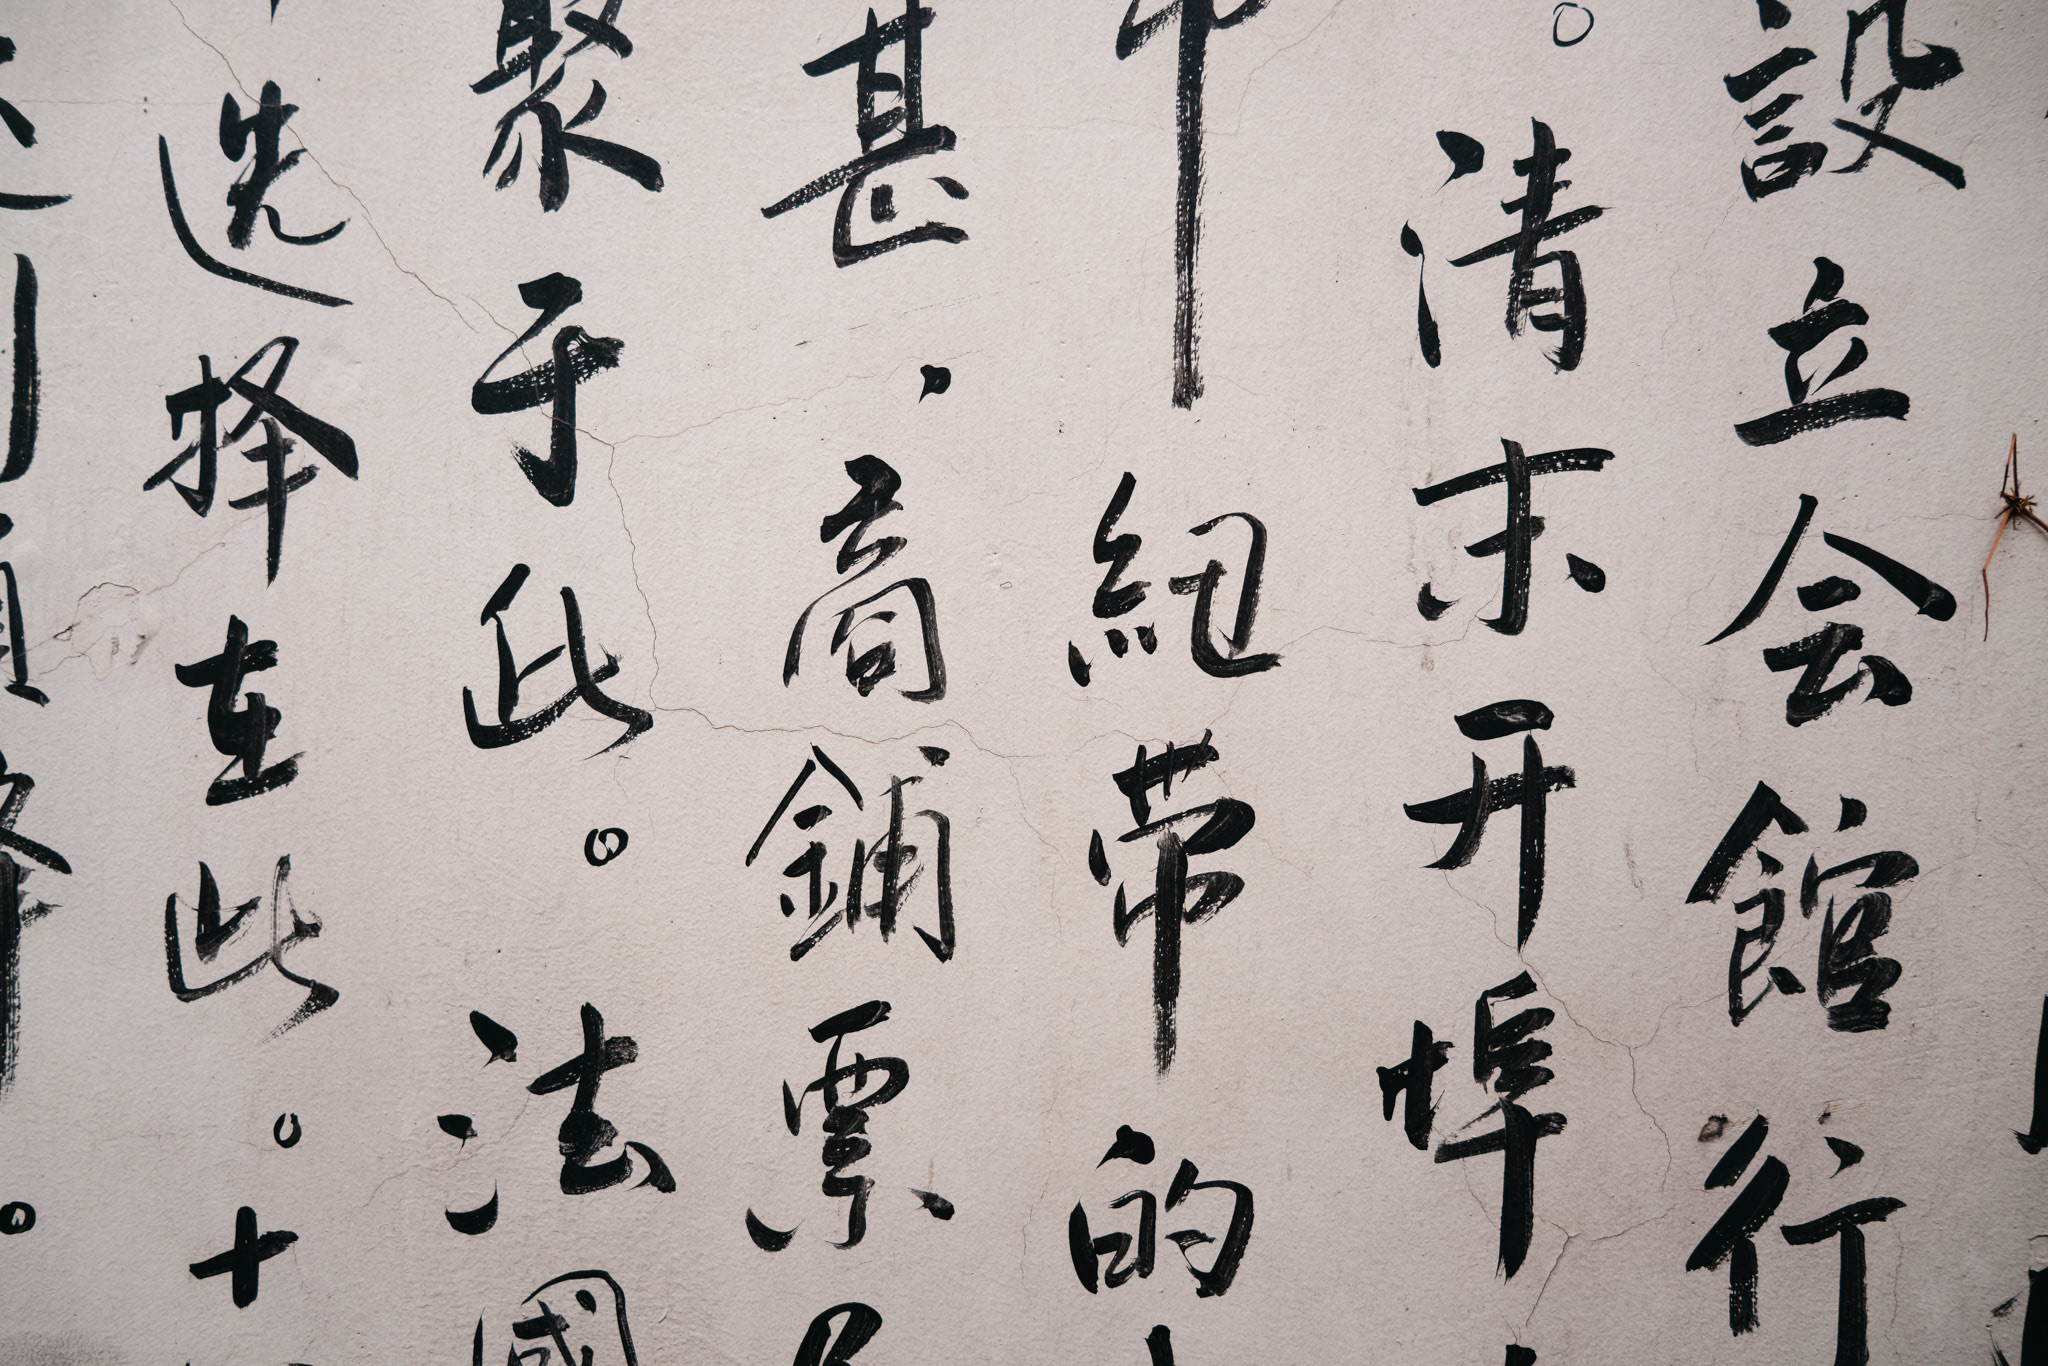 設立会館行
。清末开埠
紐带的
甚，商鋪票
聚于此。法國
选择在此。十
。